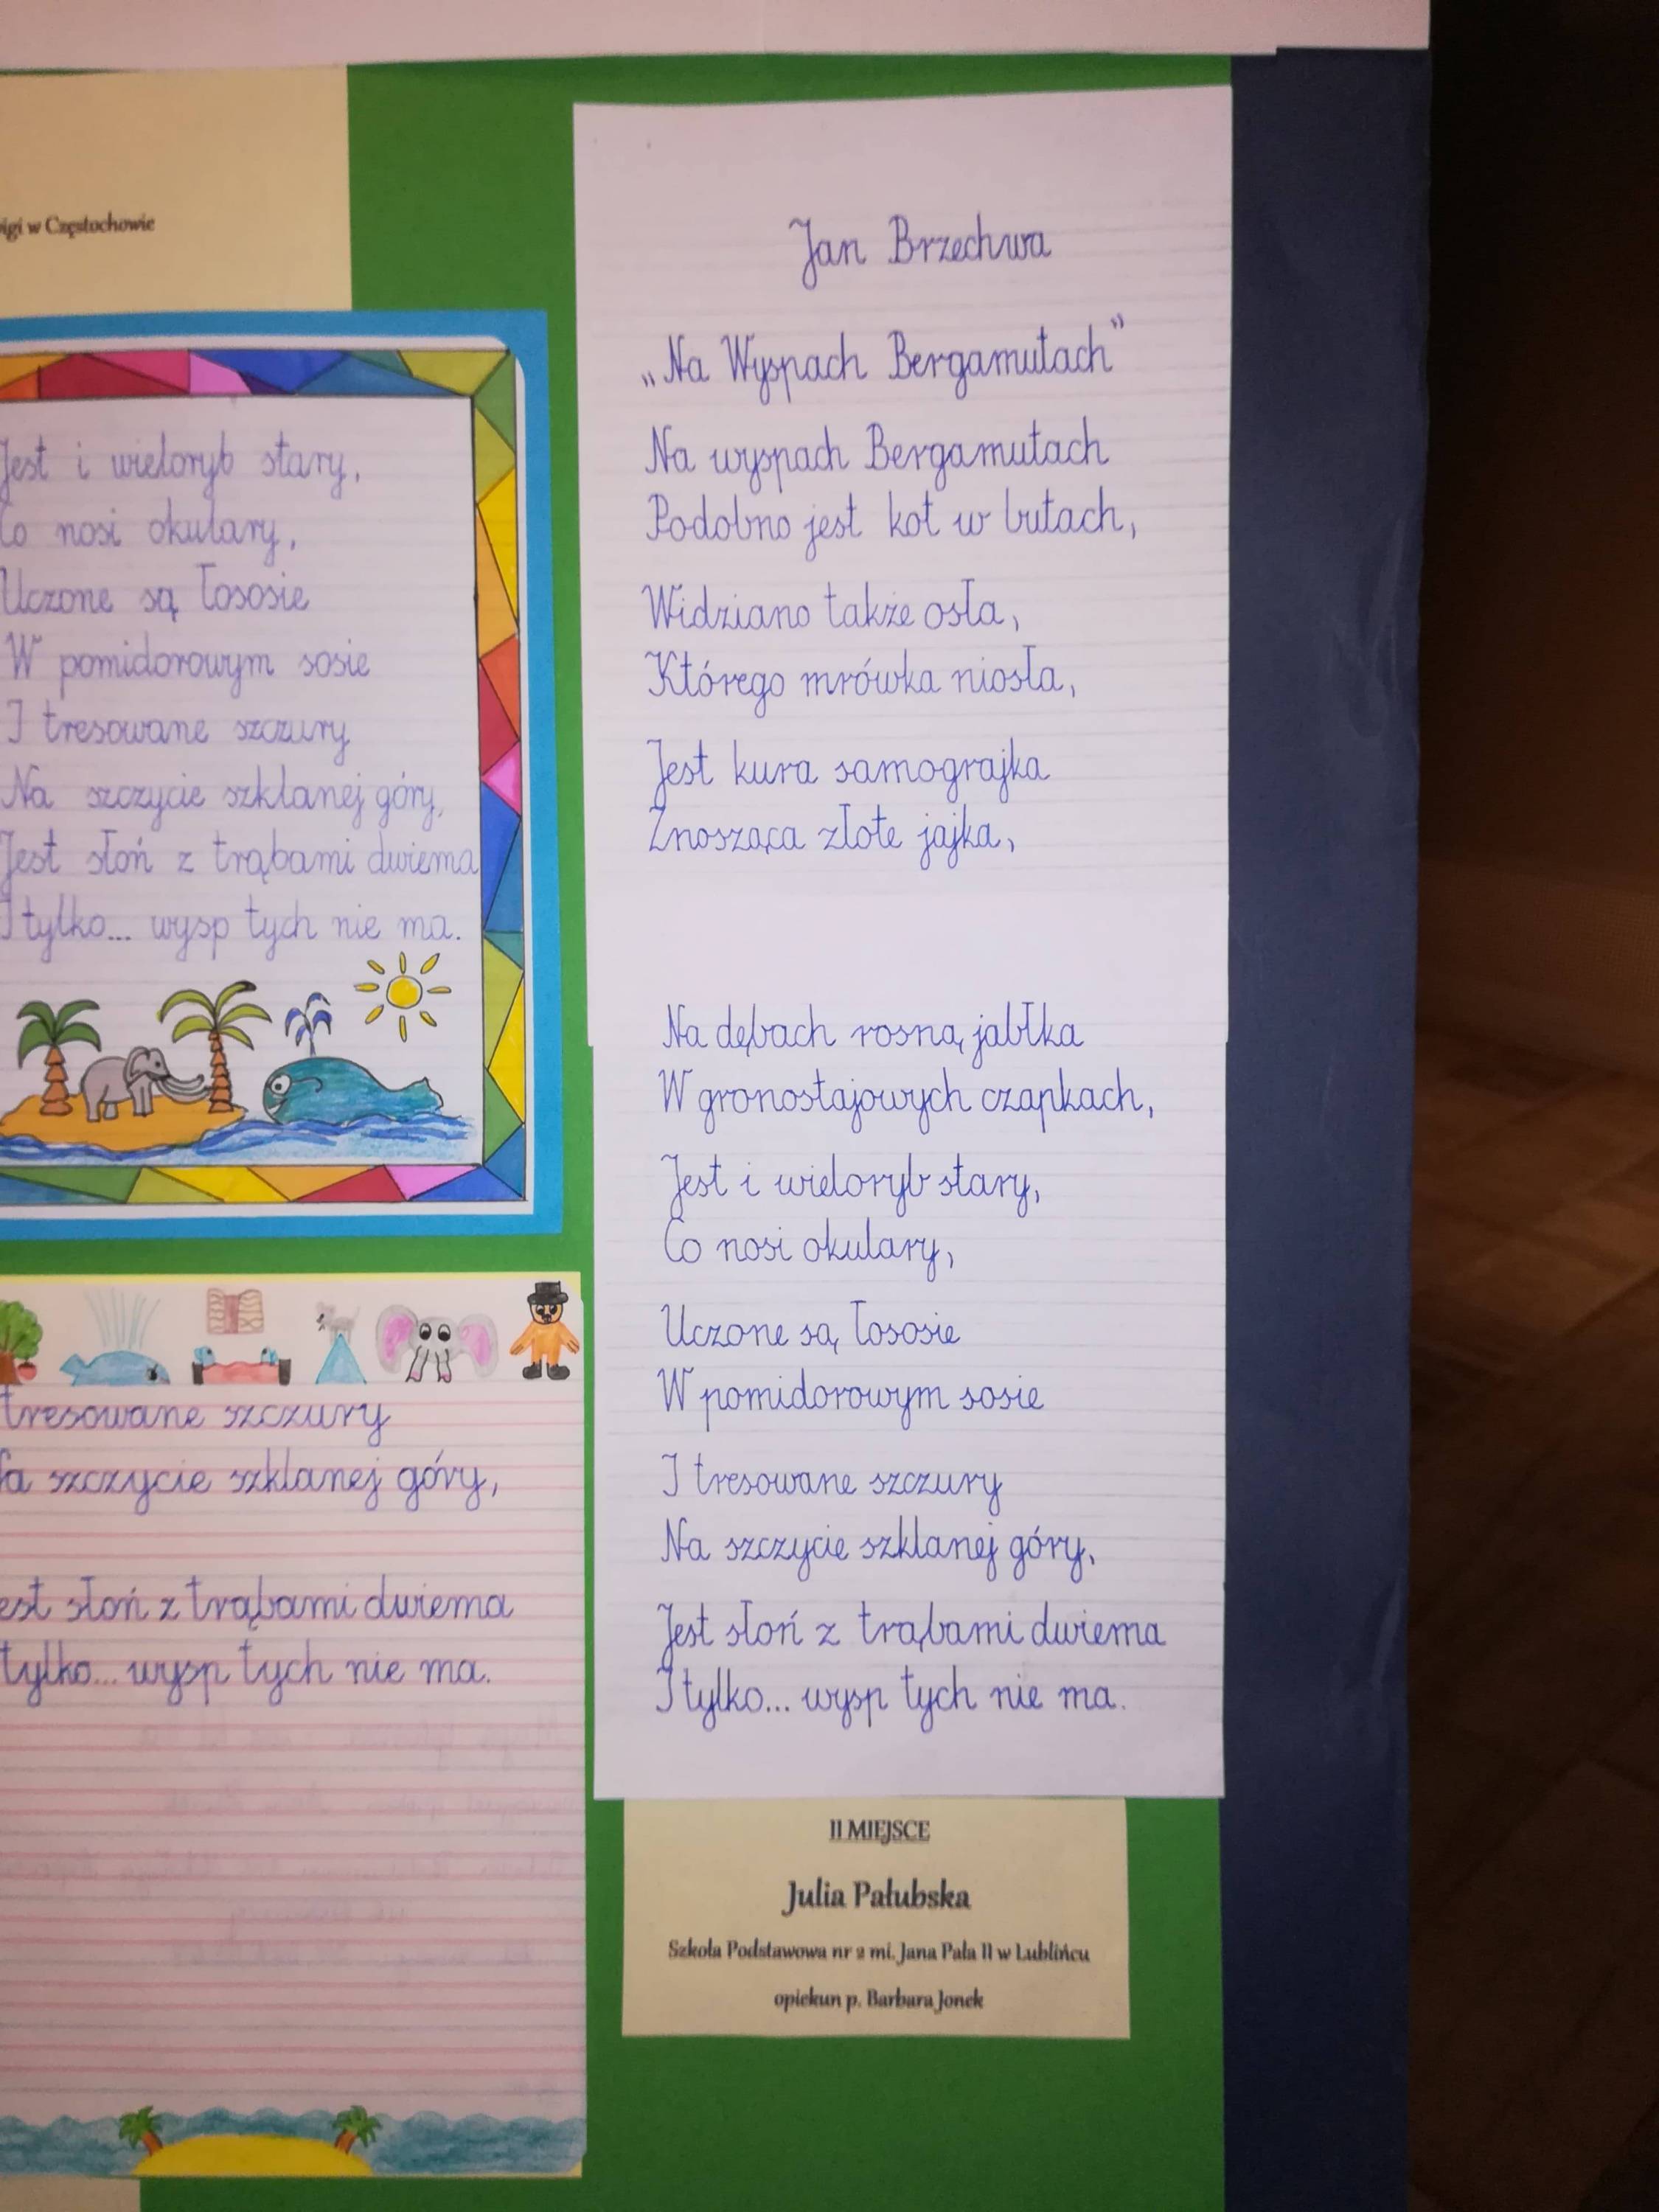 w Częstochowie
Jest i wieloryb stary,
Co nosi okulary,
Uczone są łososie
W pomidorowym sosie
I tresowane szczury
Na szczycie szklanej góry,
Jest słoń z trąbami dwiema
I tylko... wysp tych nie ma.
tresowane szczury
szczycie szklanej góry,
słoń z trąbami dwiema
tylko... wysp tych nie ma.
Jan Brzechwa
„Na Wyspach Bergamutach"
Na wyspach Bergamutach
Podobno jest kot w butach,
Widziano także osła,
Którego mrówka niosła,
Jest kura samograjka
Znosząca złote jajka,
Na dębach rosną jabłka
W gronostajowych czapkach,
Jest i wieloryb stary,
Co nosi okulary,
Uczone są łososie
W pomidorowym sosie
I tresowane szczury
Na szczycie szklanej góry,
Jest słoń z trąbami dwiema
I tylko... wysp tych nie ma.
II MIEJSCE
Julia Pałubska
Szkoła Podstawowa nr 2 mi. Jana Pała II w Lublińcu
opiekun p. Barbara Jonek